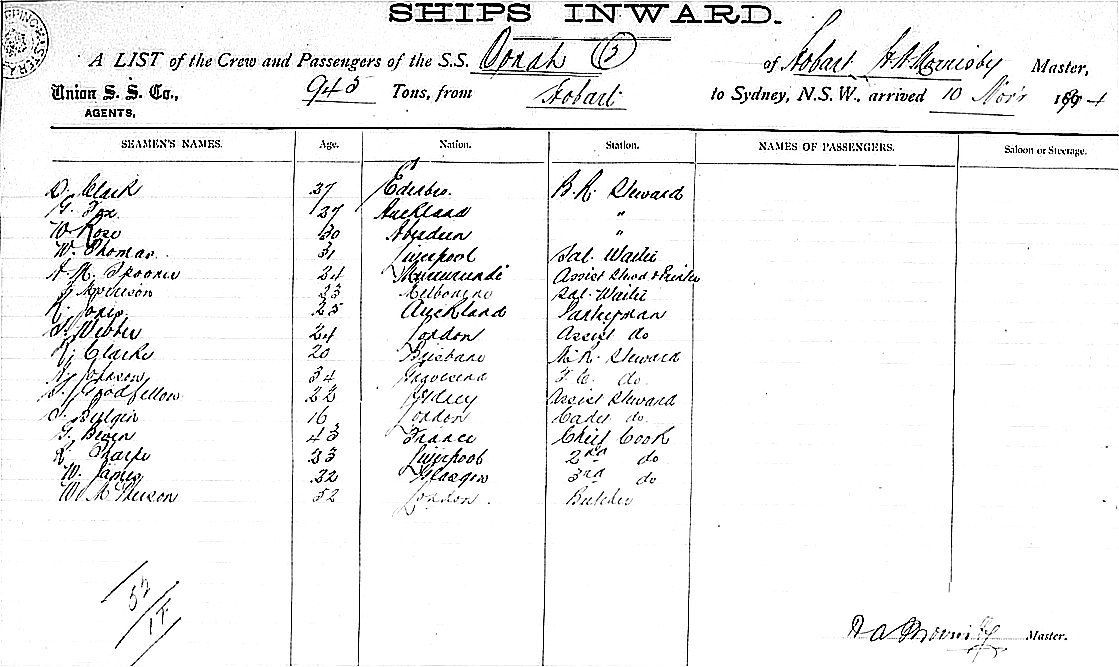 SHIPS INWARD.
A LIST of the Crew and Passengers of the S.S. Oonah of Hobart Master,
Union S. S. Co., 945 Tons, from Hobart to Sydney, N.S.W., arrived 10 Nov'r 1894
AGENTS,
SEAMEN'S NAMES. Age. Nation. Station. NAMES OF PASSENGERS. Saloon or Steerage.
D. Clark 27 Edinbro. B. R. Steward
G. Fox. 27 Auckland "
W. Rose 30 Aberdeen "
W. Thomas. 31 Liverpool Sal. Waiter
Spooner 24 Assist
Morrison 23 Melbourne Sal. Waiter
Jones 25 Auckland Pantryman
Webber 24 London Assist do
Clarke 20 Brisbane Steward
Johnson 34 Gravesend do.
Goodfellow 22 Sydney Assist Steward
16 London Cadet do.
43 France Chief Cook
Sharpe 23 Liverpool 2nd do
W. James 22 Glasgow 3rd do
52 London. Butcher
Master.